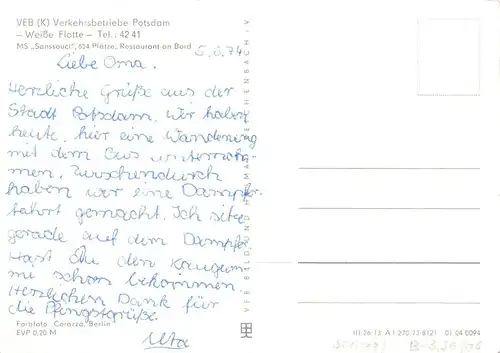 VEB (K) Verkehrsbetriebe Potsdam
— Weiße Flotte — Tel.: 42 41
MS „Sanssouci", 634 Plätze, Restaurant an Bord
5.6.74
Liebe Oma.
Herzliche Grüße aus der
Stadt Potsdam. Wir haben
heute, hier eine Wanderung
mit dem Bus unterneh-
men. Zwischendurch
haben wir eine Dampfer
fahrt gemacht. Ich sitze
gerade auf dem Dampfer
Hast Du den Kaugum
mi schon bekommen.
Herzlichen Dank für
die Pfingstgrüße.
Uta
Farbfoto Corazza, Berlin
EVP 0,20 M
VEB BILD UND HEIMAT REICHENBACH i V
III-26-13 A 1 270 73 8121 01 04 0094